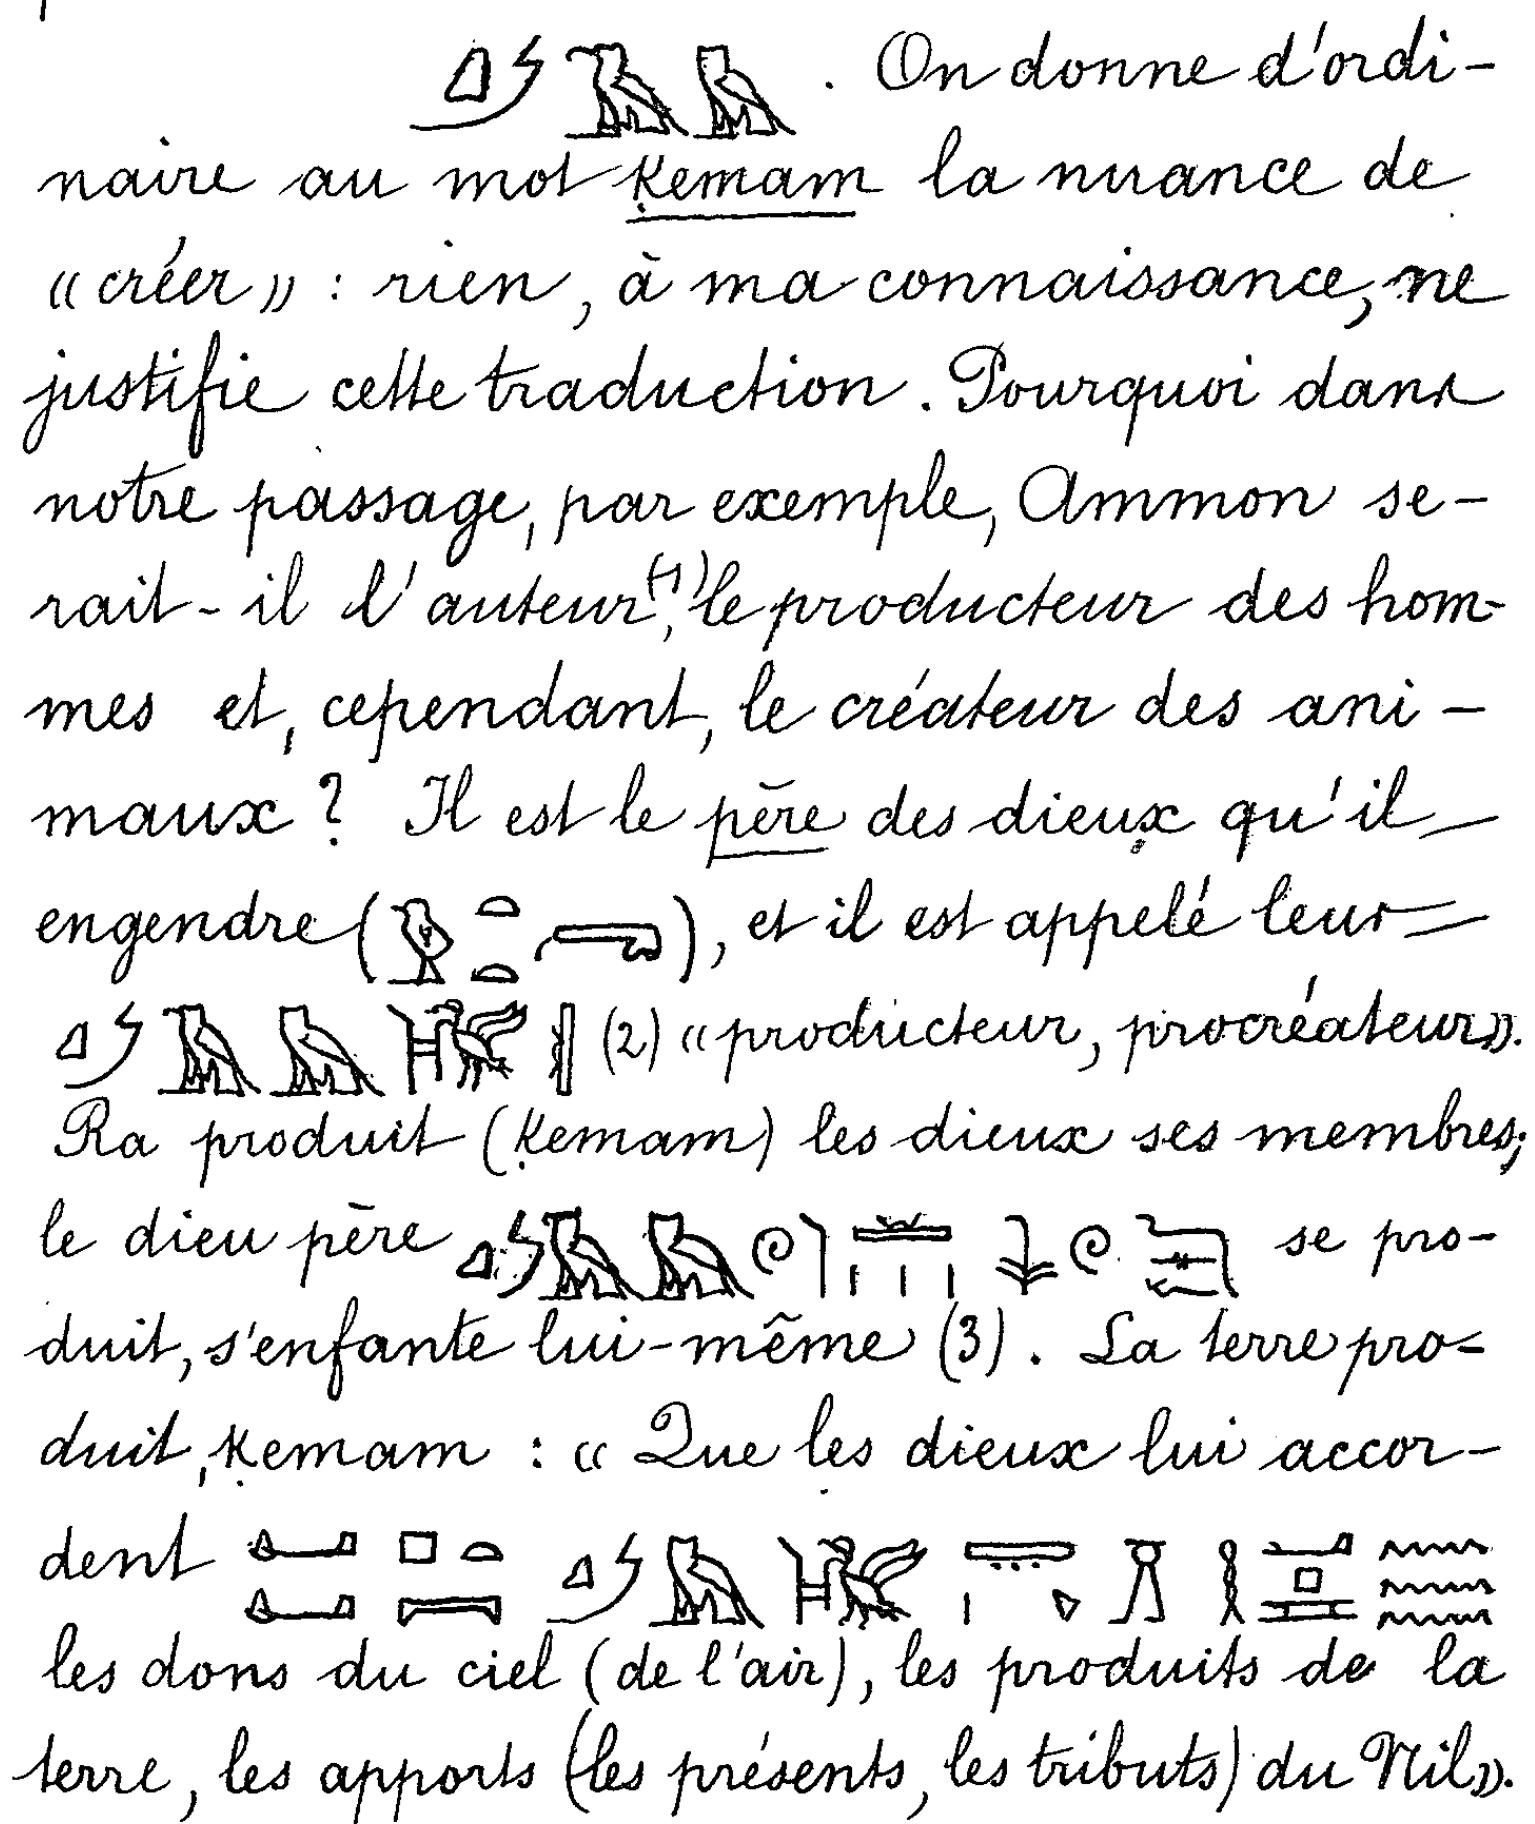 . On donne d'ordi-
naire au mot ḳemam la nuance de
« créer » : rien, à ma connaissance, ne
justifie cette traduction. Pourquoi dans
notre passage, par exemple, Ammon se-
rait-il l'auteur(1), le producteur des hom-
mes et, cependant, le créateur des ani-
maux ? Il est le père des dieux qu'il
engendre ( ), et il est appelé leur
(2) « producteur, procréateur ».
Ra produit (ḳemam) les dieux ses membres;
le dieu père se pro-
duit, s'enfante lui-même (3). La terre pro-
duit, ḳemam : « Que les dieux lui accor-
dent
les dons du ciel (de l'air), les produits de la
terre, les apports (les présents, les tributs) du Nil ».